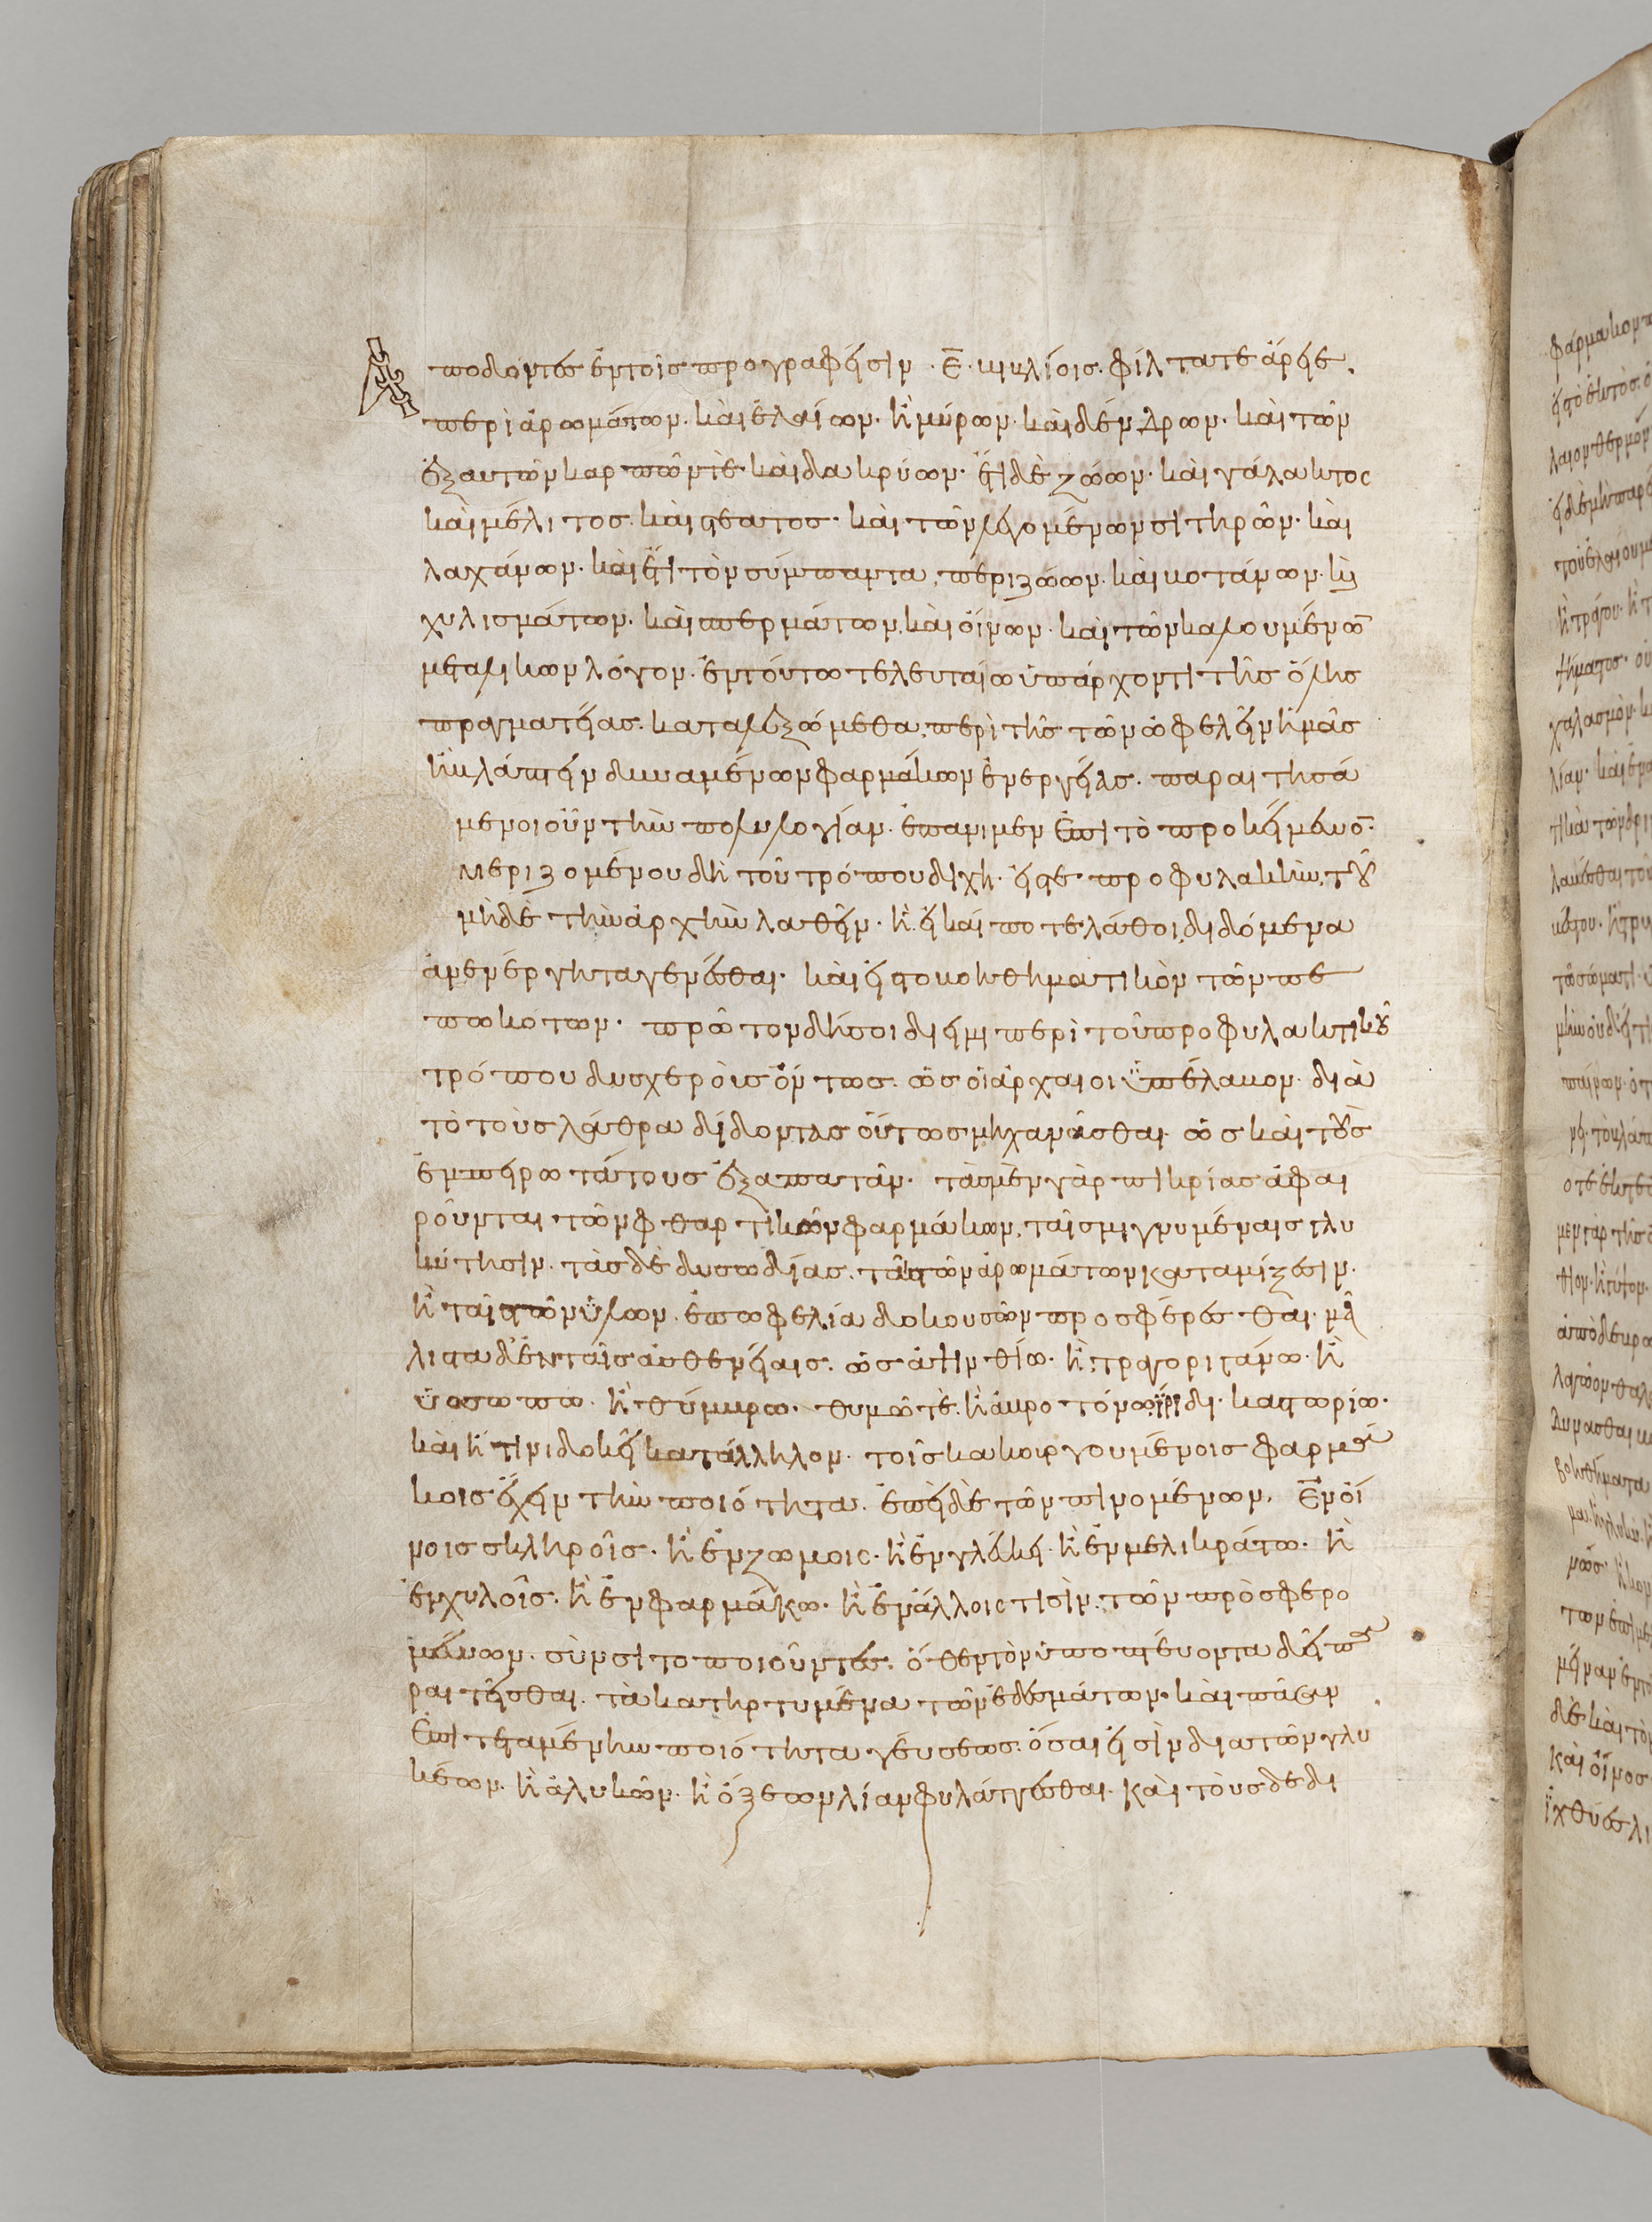 Ἀποδόντες ἐν τοῖς προγραφεῖσιν · ε̄ · βιβλίοις. φίλτατε ἄρειε.
περὶ ἀρωμάτων. καὶ ἐλαίων. κ̀ μύρων. καὶ δένδρων. καὶ τῶν
ἐξ αυτῶν καρπῶν τὲ. καὶ δακρύων. ἔτι δὲ ζώων. καὶ γάλακτος
καὶ μέλιτος. καὶ στέατος. καὶ τῶν λεγομένων σιτηρῶν. καὶ
λαχάνων. καὶ ἔτι τὸν σύμπαντα, περὶ ζώων. καὶ βοτάνων. κ̀
χυλισμάτων. καὶ σπερμάτων. καὶ οἴνων. καὶ τῶν καλουμένω̄
μεταλικων λόγον. ἐν τούτω τελευταίω ὑπάρχοντι τῆς ὅλης
πραγματείας. καταλεξώμεθα, περὶ τῆς τῶν ὠφελεῖν ἡμᾶς
ἢ βλάπτειν δυναμένων φαρμάκων ἐνεργείας. παραιτησά
μενοι οὖν τὴν πολυλογίαν. ἐπάνιμεν ἐπὶ τὸ προκείμενο̄.
μεριζομένου δὴ τοῦ τρόπου διχῆ. εἴς τε προφυλακὴν, τοῦ
μηδὲ τὴν ἀρχὴν λαθεῖν. κ̀ εἰ καί ποτε λάθοι, διδόμενα
ἀνενέργητα γενέσθαι. καὶ εἰς το βοηθηματικὸν τῶν πε
πωκότων. πρῶτον δή σοι δίειμι περὶ τοῦ προφυλακτικοῦ
τρόπου δυσχεροῦς ὄντως. ὡς οἱ ἀρχαῖοι ὑπέλαβον. διὰ
τὸ τοὺς λάθρα διδόντας οὕτως μηχανᾶσθαι. ὡς καὶ τοὺς
ἐμπειροτάτους ἐξαπατᾶν. τὰς μὲν γὰρ πικρίας ἀφαι
ροῦνται τῶν φθαρτικῶν φαρμάκων, ταῖς μιγνυμέναις γλυ
κύτησιν. τὰς δὲ δυσωδίας, ταῖς τῶν ἀρωμάτων καταμίξεσιν.
κ̀ ταῖς τῶν ὑλῶν. ἐπ ωφελία δοκουσῶν προσφέρεσθαι. μά
λιστα δ' ἐν ταῖς ἀσθενείαις. ὡς ἀψινθίω. κ̀ τραγοριγάνω. κ̀
ὑσώπω. κ̀ θύμβρω. θυμῶ τὲ. κ̀ ἀβροτόνω, ἴριδι. καστωρίω.
καὶ εἴ τινι δοκεῖ κατάλληλον. τοῖς κακουργουμένοις φαρμά
κοις ἔχειν τὴν ποιότητα. ἐπεὶ δὲ τῶν πινομένων, ἐν οἴ
νοις σκληροῖς. κ̀ ἐν ζωμοις. κ̀ ἐν γλεύκει. κ̀ ἐν μελικράτω. κ̀
ἐν χυλοῖς. κ̀ ἐν φαρμάκω. κ̀ ἐν ἄλλοις τισὶν, τῶν προσφερο
μένων. σὺν σιτοποιοῦντες. ὅθεν τὸν ὑποπτεύοντα δεῖ πα
ραιτεῖσθαι. τὰ κατηρτυμένα τῶν ἐδεσμάτων. καὶ πᾶσαν
ἐπιτεταμένην ποιότητα γεύσεως. ὅσαι εἰσὶν δια τῶν γλυ
κέων. κ̀ ἁλυκῶν. κ̀ ὀξέων λίαν φυλάττεσθαι. καὶ τοὺς δεδι